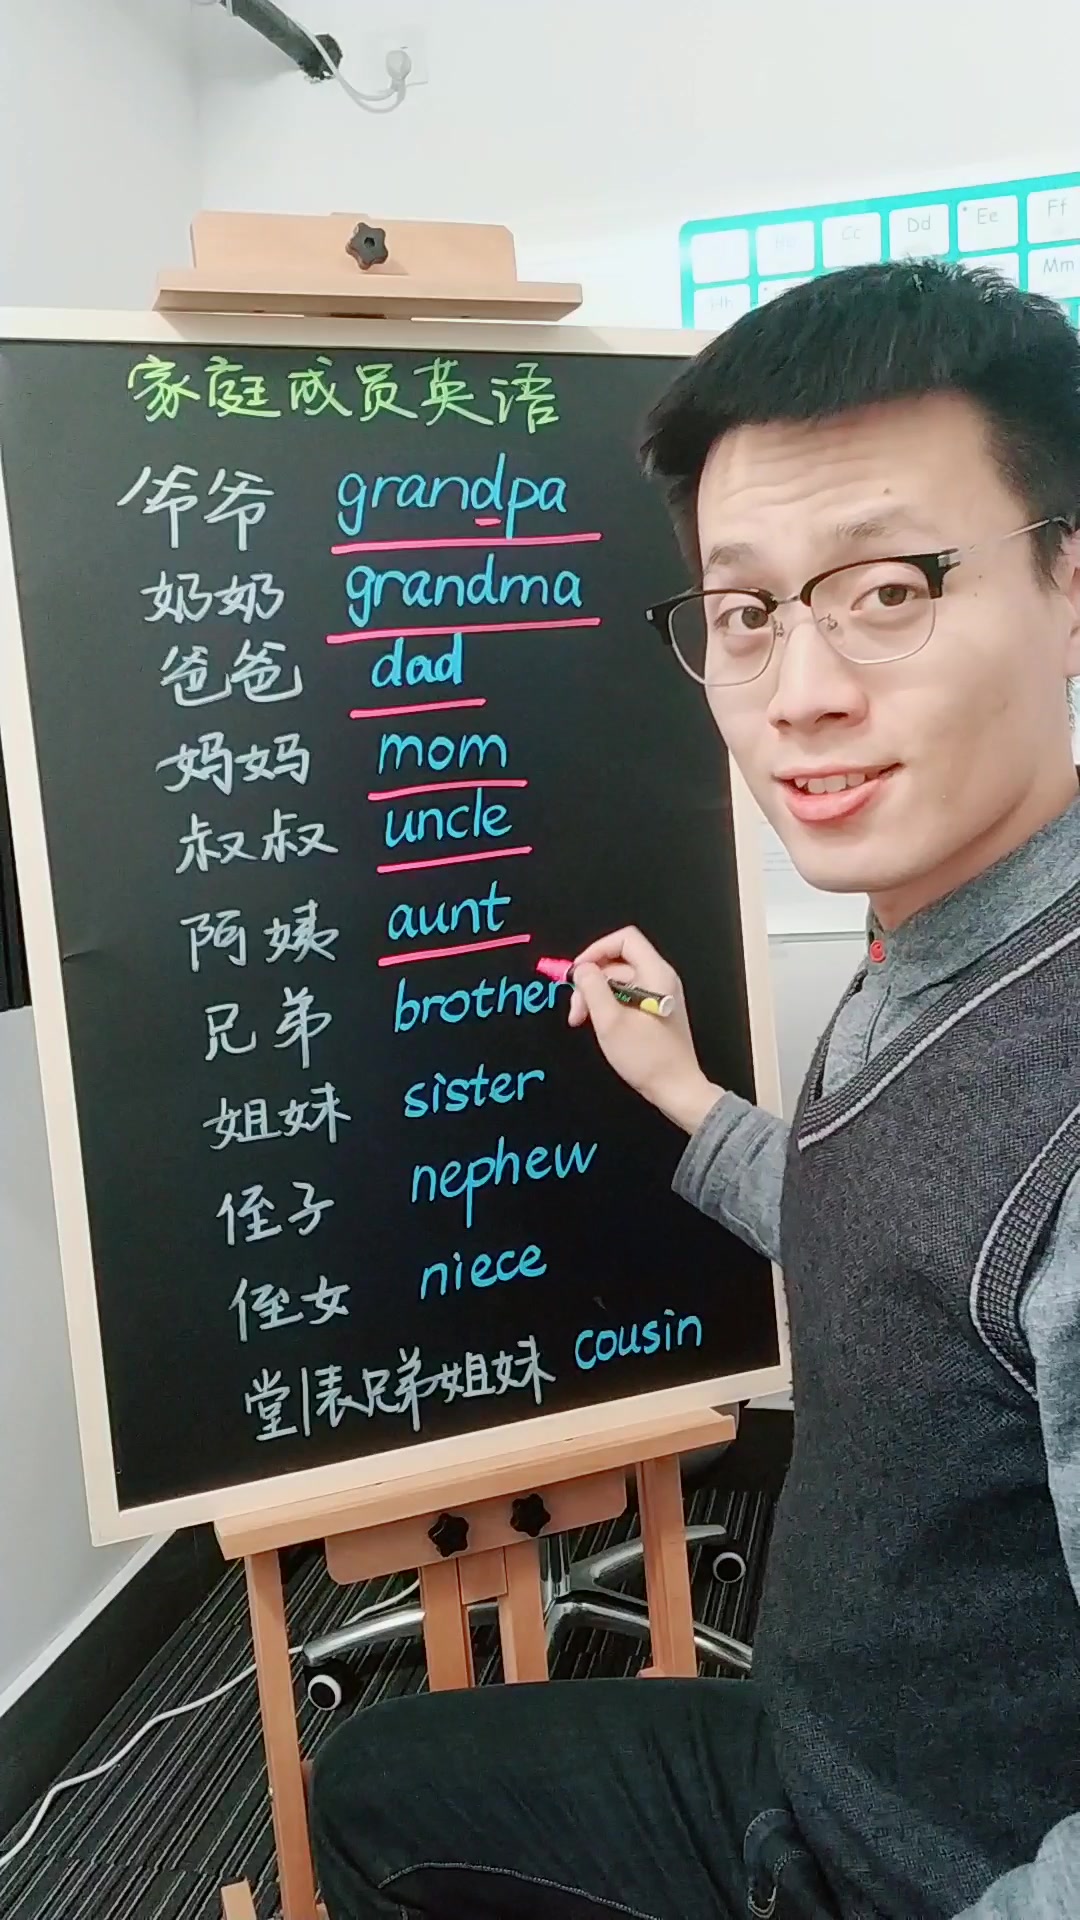 家庭成员英语
爷爷 grandpa
奶奶 grandma
爸爸 dad
妈妈 mom
叔叔 uncle
阿姨 aunt
兄弟 brother
姐妹 sister
侄子 nephew
侄女 niece
堂|表兄弟姐妹 cousin
Cc Dd Ee Ff
Hh Mm